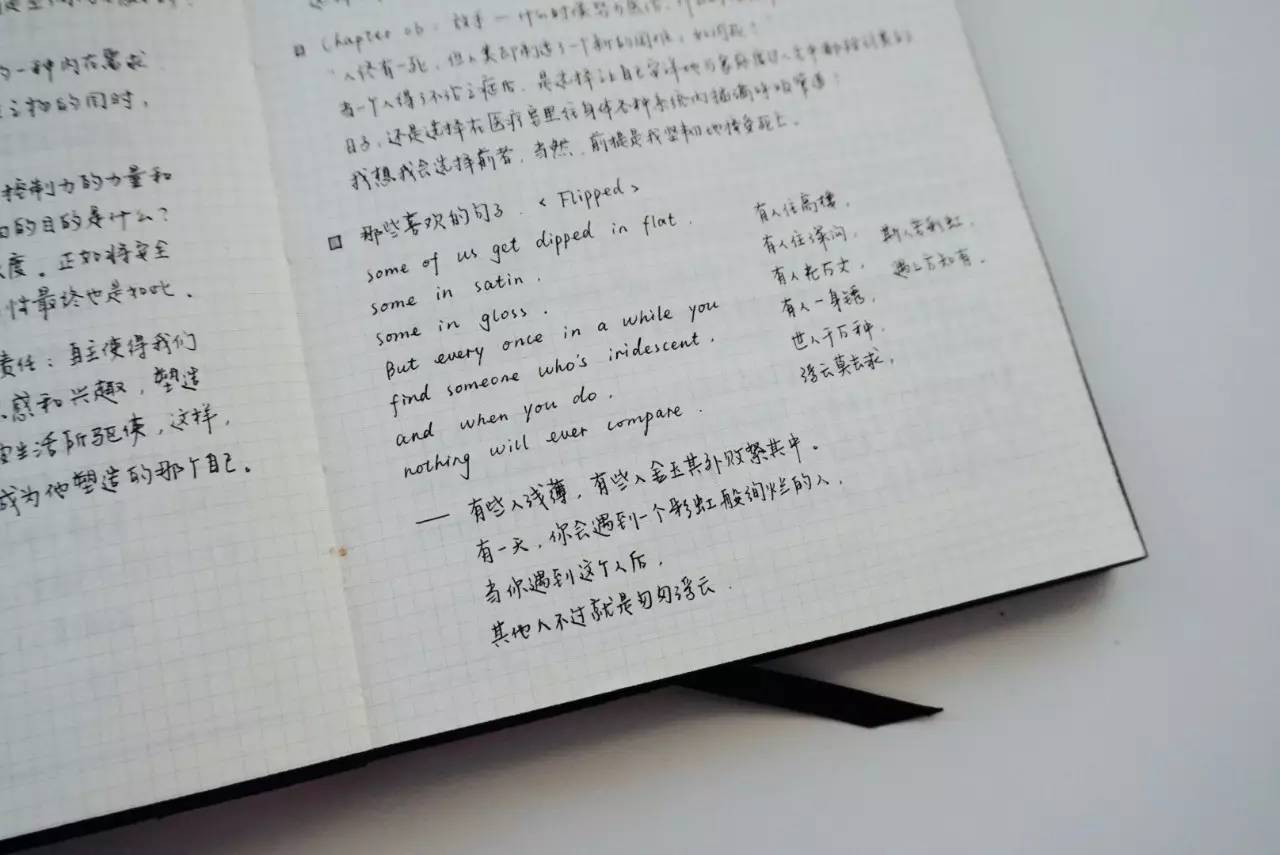 一种内在需求
的同时，
控制力的力量和
的目的是什么？
度。正如将安全
性最终也是如此。
责任：自主使得我们
感和兴趣，塑造
生活所驱使，这样，
成为他塑造的那个自己。
Chapter 06：放手 — 什么时候努力医治，
"人终有一死，但人类却制造了一个新的困难，如何死？"
当一个人得了不治之症后，是选择让自己安详地与家所度过人生中
日子，还是选择在医疗室里往身体各种系统内插满呼吸管道？
我想我会选择前者，当然，前提是我坚韧地接受死亡。
那些喜欢的句子．《Flipped》
some of us get dipped in flat .
some in satin .
some in gloss .
But every once in a while you
find someone who's iridescent .
and when you do .
nothing will ever compare .
有人住高楼，
有人住深沟，
有人光万丈，
有人一身锈，
世人千万种，
浮云莫去求，
斯人若彩虹，
遇上方知有。
—— 有些人浅薄，有些人金玉其外败絮其中。
有一天，你会遇到一个彩虹般绚烂的人，
当你遇到这个人后，
其他人不过就是匆匆浮云．